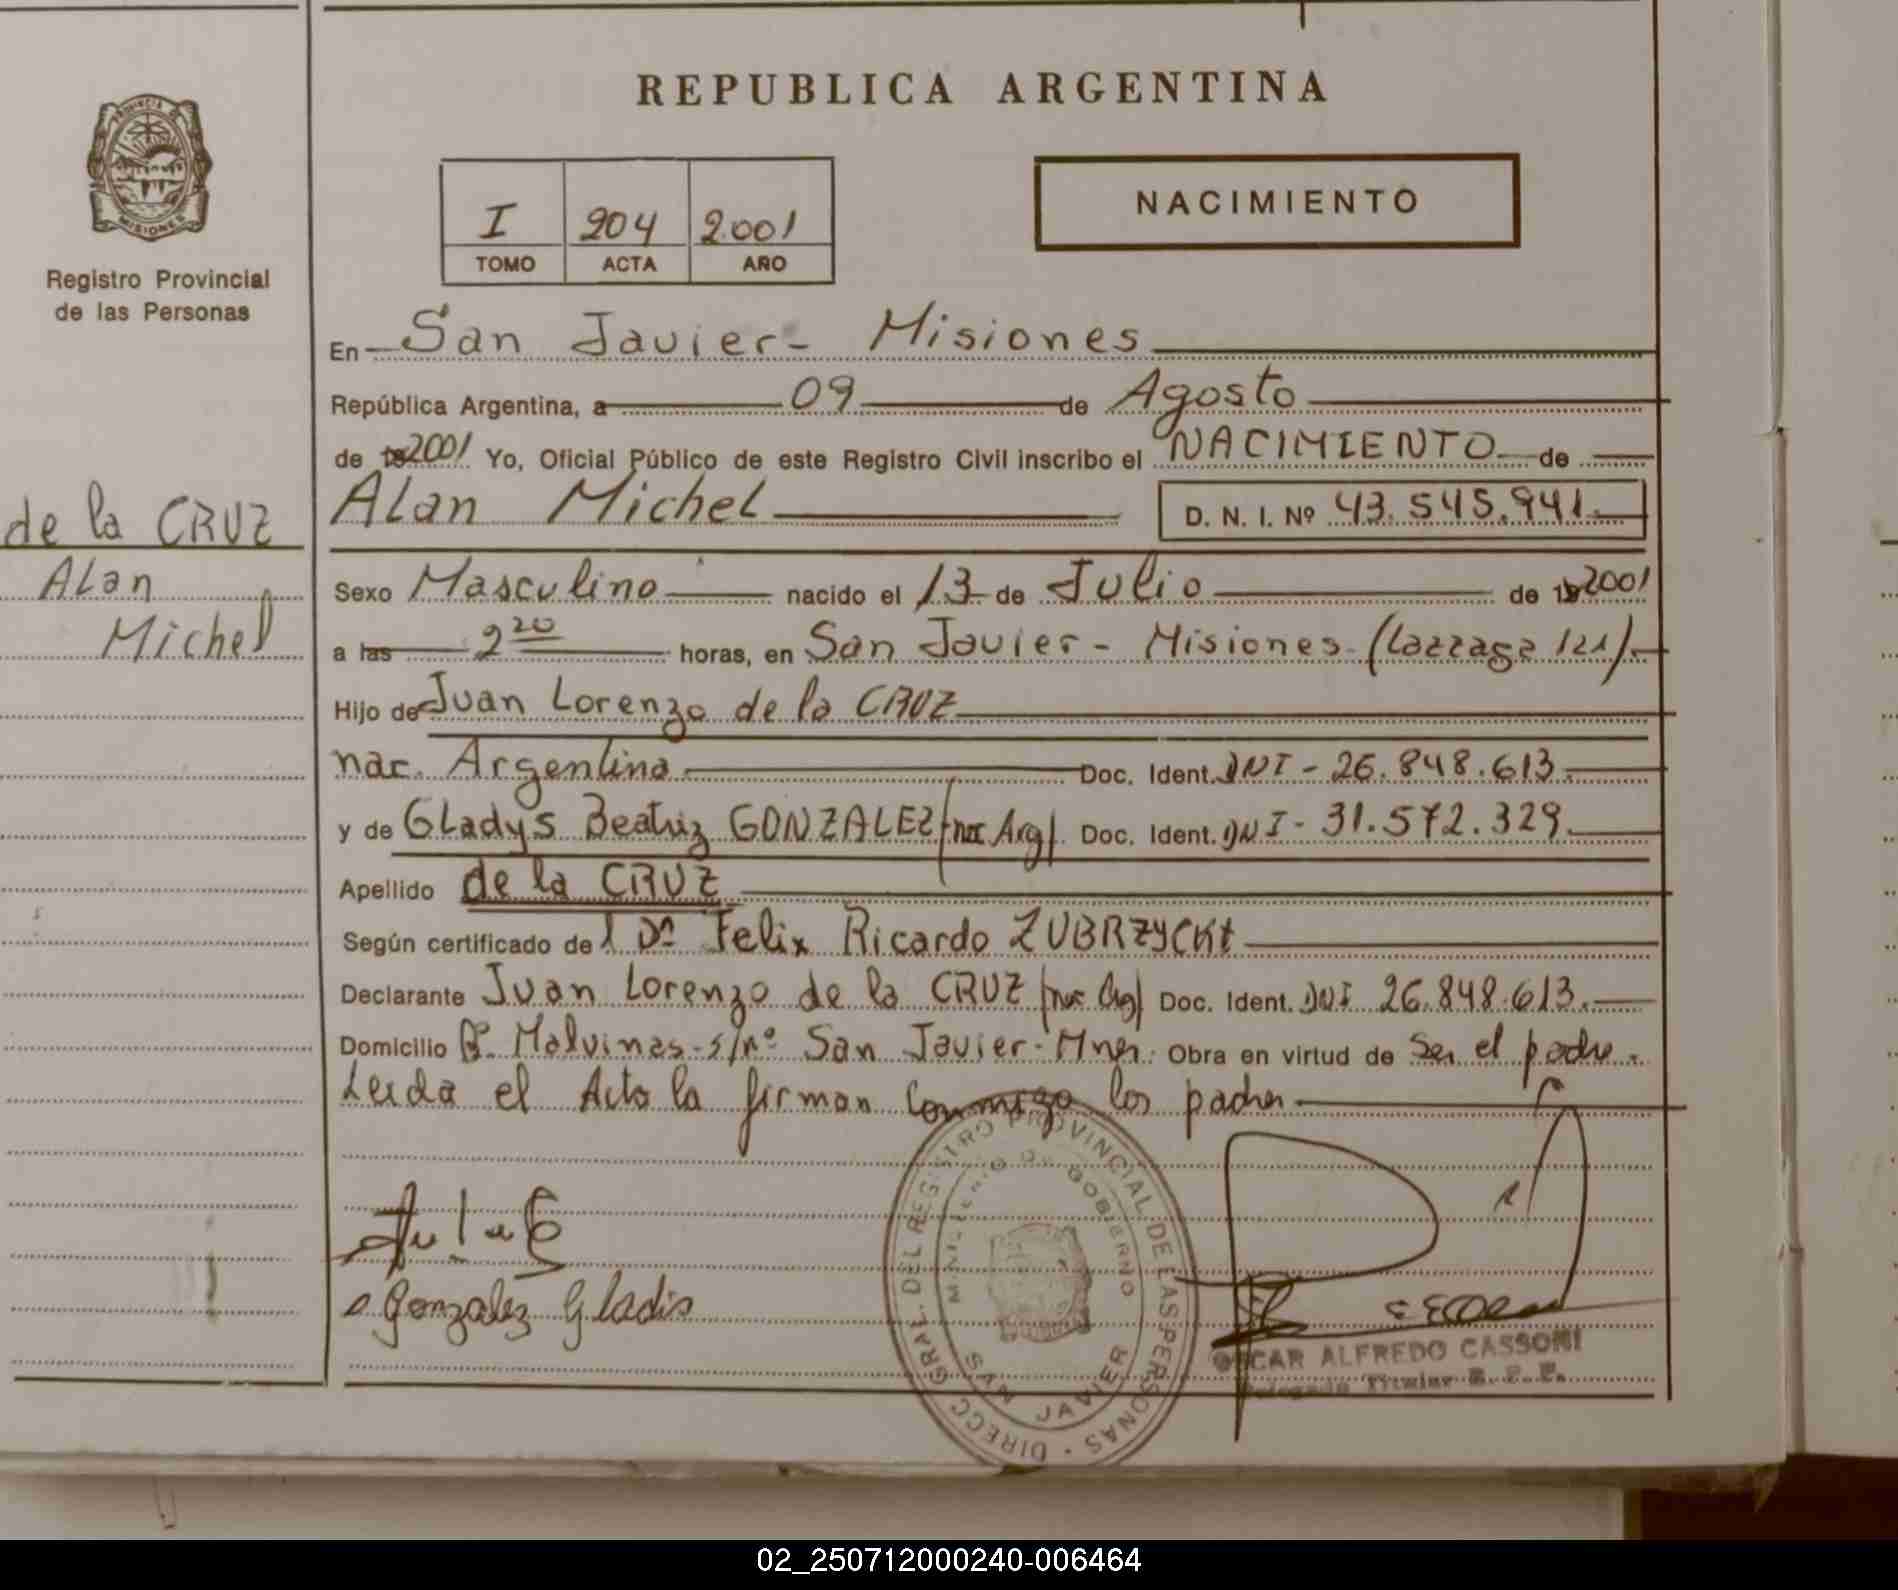 REPUBLICA ARGENTINA
PROVINCIA DE
MISIONES
Registro Provincial
de las Personas
I 204 2.001
TOMO ACTA AÑO
NACIMIENTO
de la CRUZ
Alan
Michel
En San Javier - Misiones
República Argentina, a 09 de Agosto
de 2001 Yo, Oficial Público de este Registro Civil inscribo el NACIMIENTO de
Alan Michel D. N. I. Nº 43.545.941.
Sexo Masculino nacido el 13 de Julio de 2001
a las 2 20 horas, en San Javier - Misiones - (Lazzaga 121).
Hijo de Juan Lorenzo de la CRUZ
nac. Argentina Doc. Ident. DNI - 26.848.613.
y de GLadys Beatriz GONZALEZ (nac Arg) Doc. Ident. DNI - 31.572.329.
Apellido de la CRUZ
Según certificado del Dr Felix Ricardo ZUBRZYCKI
Declarante Juan Lorenzo de la CRUZ (nac Arg) Doc. Ident. DNI 26.848.613.
Domicilio Bº Malvinas - s/nº San Javier - Mnes. Obra en virtud de Ser el padre.
Leida el Acta la firman conmigo los padres
Gonzalez Gladis
DIRECC GRAL. DEL REGISTRO PROVINCIAL DE LAS PERSONAS
MINISTERIO DE GOBIERNO
SAN JAVIER
OSCAR ALFREDO CASSONI
Delegado Titular R. P. P.
02_250712000240-006464